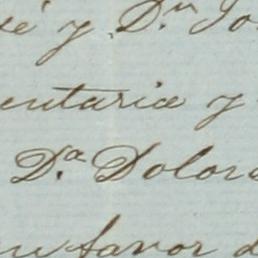 é y D.ⁿ Jo
entaria y
D.ª Dolor
favor d